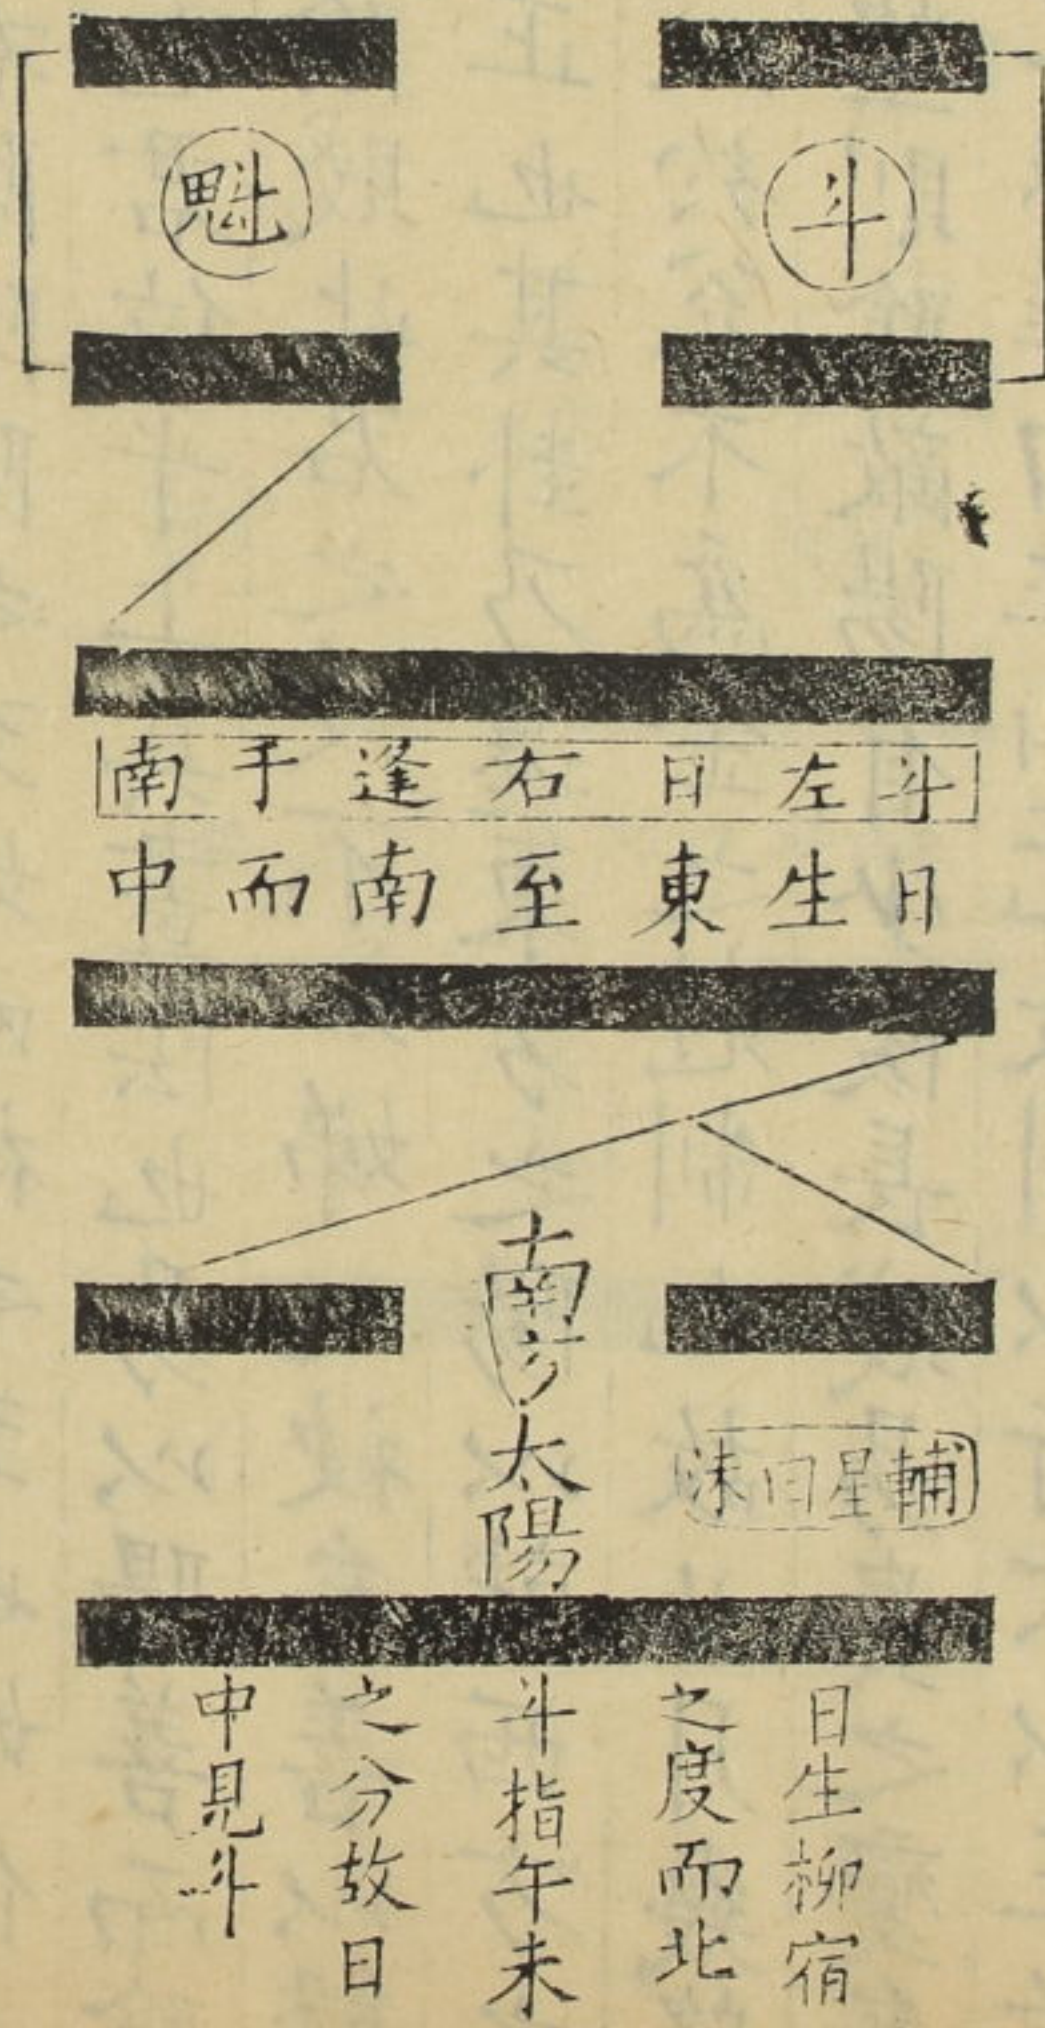 斗
魁
斗左日右逢于南
日生東至南而中
南方太陽
輔星曰沬
日生柳宿
之度而北
斗指午未
之分故日
中見斗